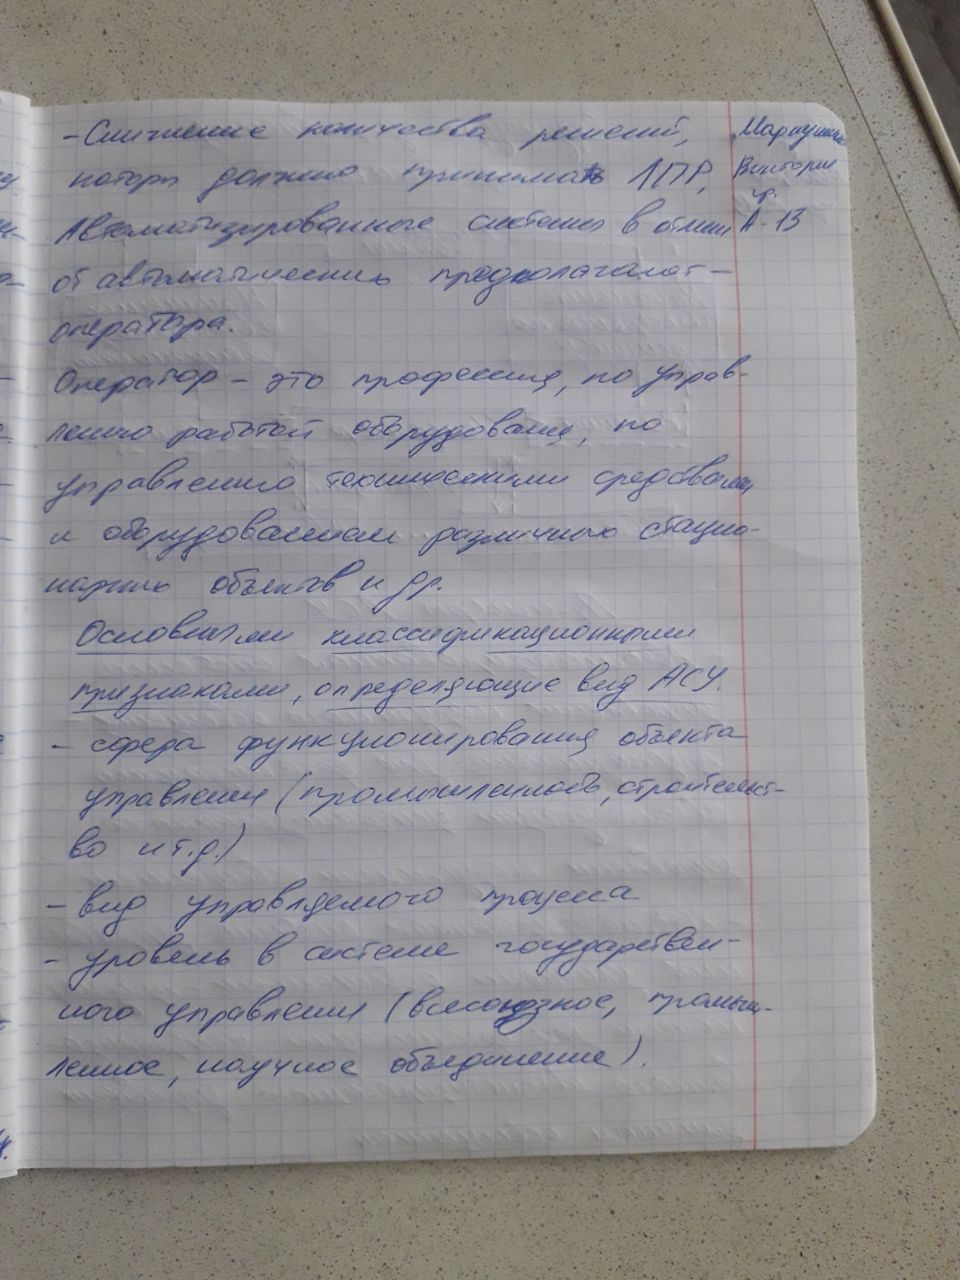 - Снижение количества решений,
котор должно принимать ЛПР,
Автоматизированные системы в отличи
от автоматических предполагают -
оператора.
Оператор - это профессия, по управ-
лению работой оборудования, по
управлению техническими средствами
и оборудованием различных стацио-
нарных объектов и др.
Основными классификационными
признаками, определяющие вид АСУ.
- сфера функционирования объекта
управления (промышленность, строительст-
во и т.д.)
- вид управляемого процесса
- уровень в системе государствен-
ного управления (всесоюзное, промыш-
ленное, научное объединение).
Виктория
гр.
А-13